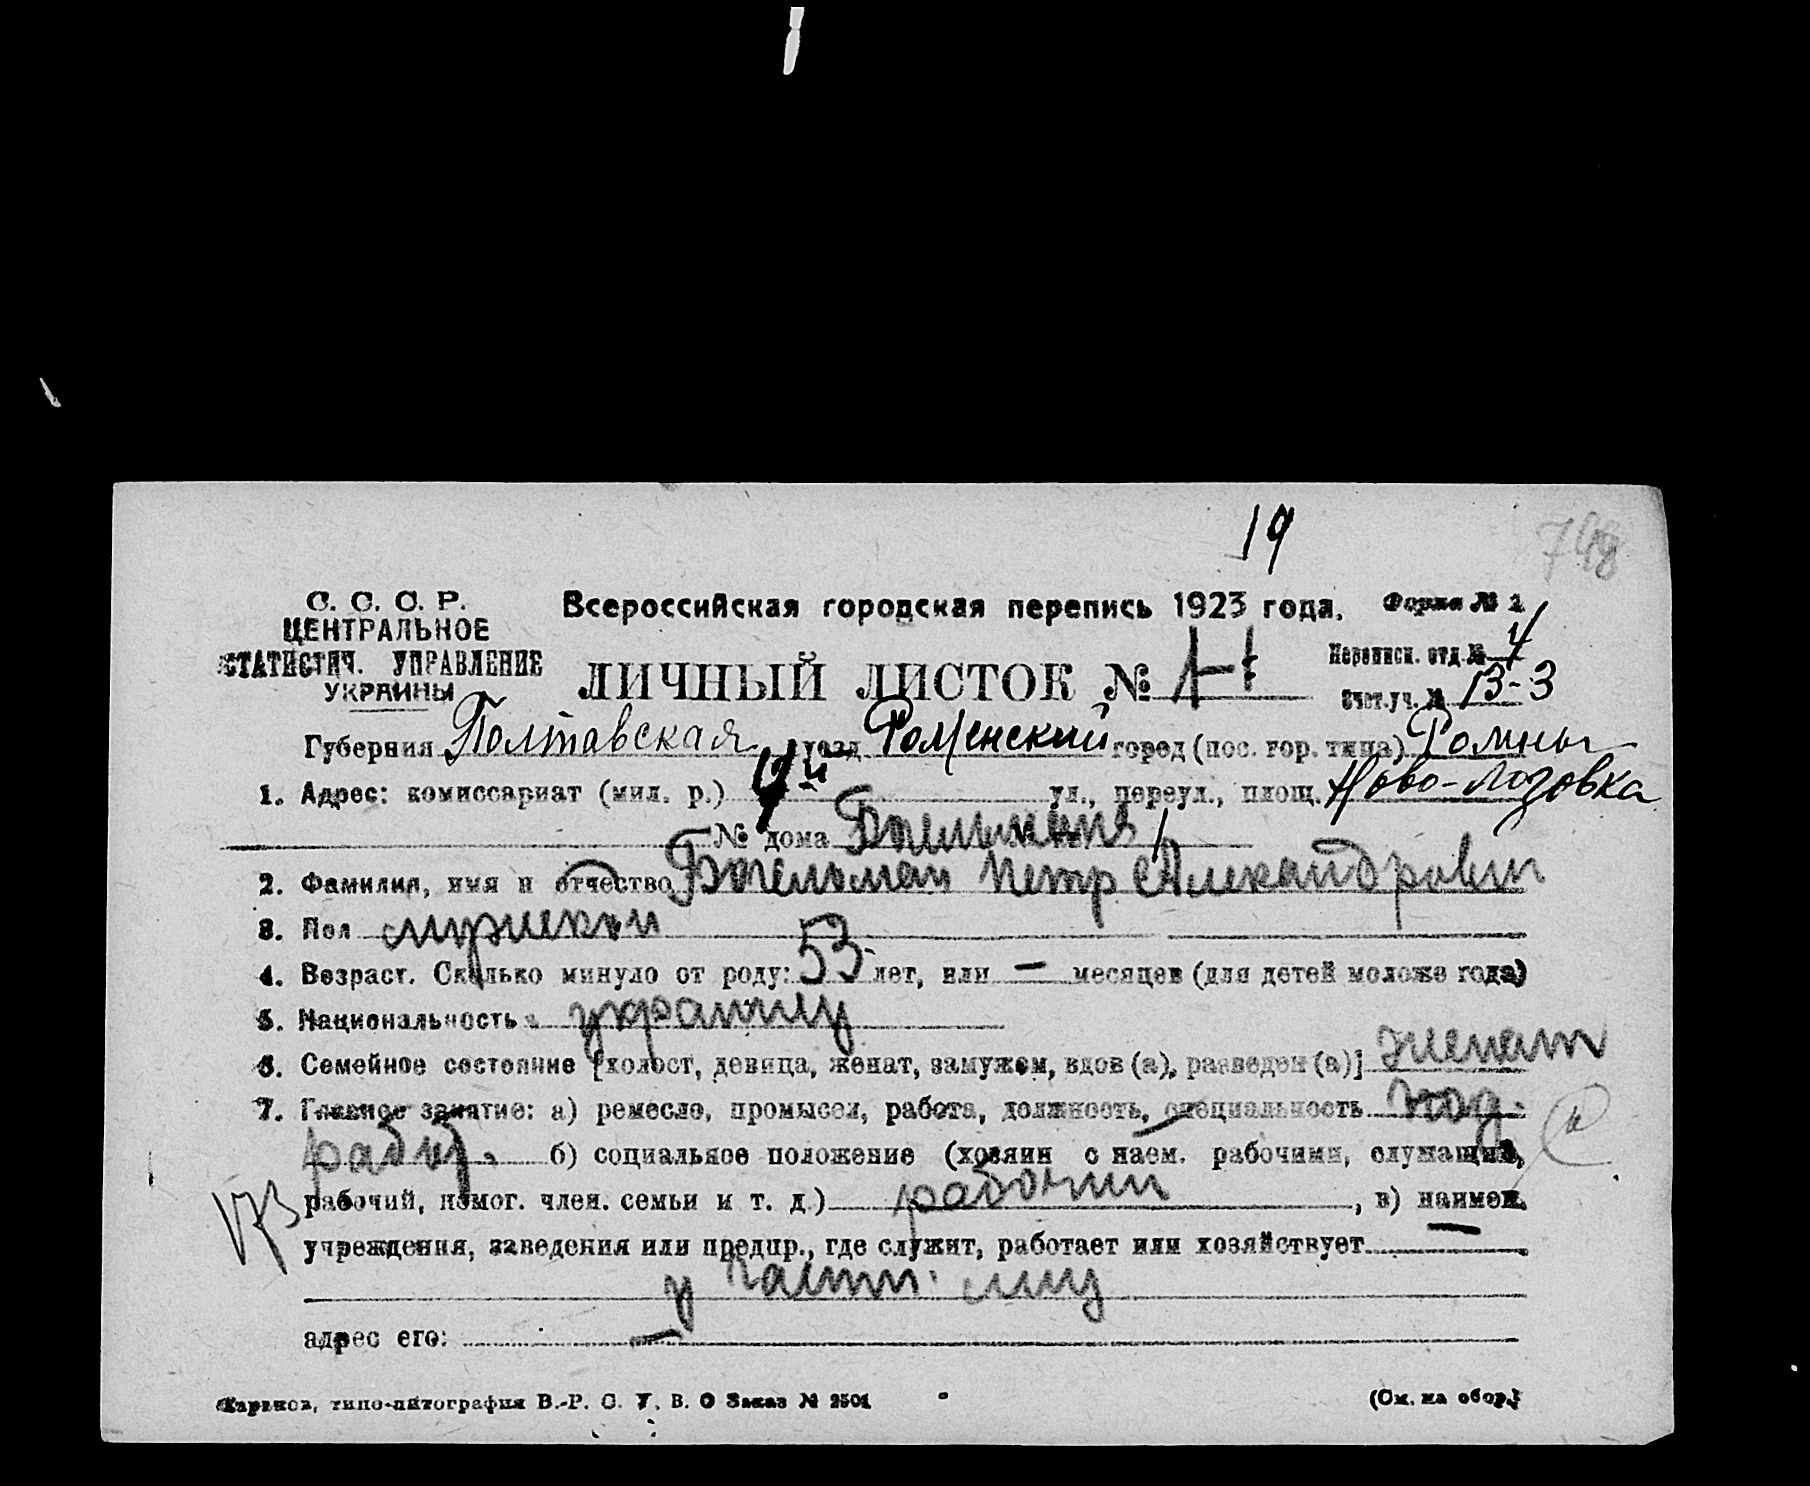 19
748
С. С. С. Р.
ЦЕНТРАЛЬНОЕ
СТАТИСТИЧ. УПРАВЛЕНИЕ
УКРАИНЫ
Всероссийская городская перепись 1923 года.
Форма № 1
ЛИЧНЫЙ ЛИСТОК №
Переписн. отд. № 4
Счет. уч. № 13-3
Губерния Полтавская уезд Роменский город (пос. гор. типа) Ромны
1. Адрес: комиссариат (мил. р.) ул., переул., площ. Ново-Лозовка
№ дома
2. Фамилия, имя и отчество Петр Александрович
3. Пол мужской
4. Возраст. Сколько минуло от роду: 53 лет, или — месяцев (для детей моложе года)
5. Национальность украинец
6. Семейное состояние [холост, девица, женат, замужем, вдов (а), разведен (а)] женат
7. Главное занятие: а) ремесло, промысел, работа, должность, специальность
б) социальное положение (хозяин с наем. рабочими, служащий,
173
рабочий, помог. член. семьи и т. д.) рабочий, в) наимен.
учреждения, заведения или предпр., где служит, работает или хозяйствует
у частн. лиц
адрес его: —
Харьков, типо-литография В.-Р. С. У. В. О Заказ № 2501
(См. на обор.)